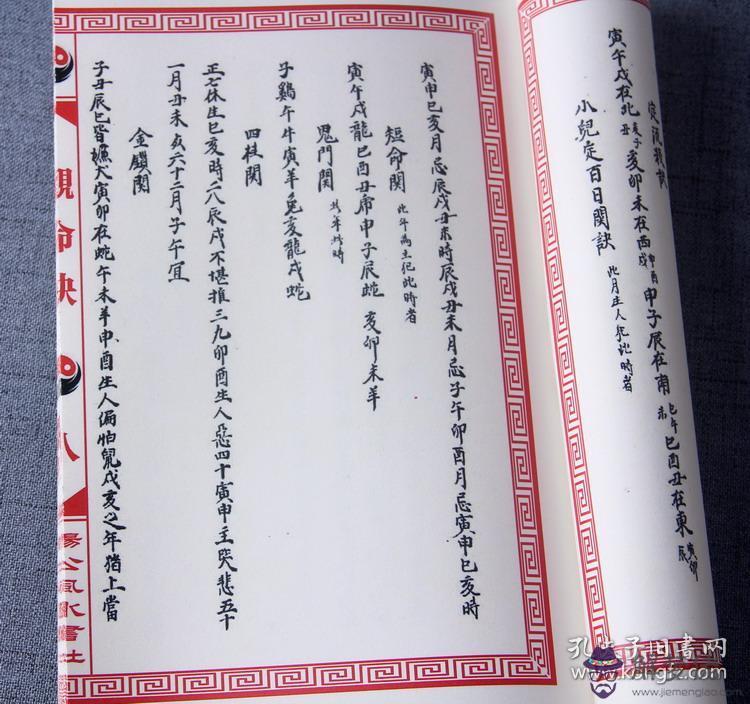 寅午戌在北亥子丑亥卯未在西申酉戌申子辰在南巳午未巳酉丑在東寅卯辰
小兒定百日関訣 此月生人犯此時者
寅申巳亥月忌辰戌丑未時辰戌丑未月忌子午卯酉月忌寅申巳亥時
短命関 此年為主犯此時者
寅午戌龍巳酉丑虎申子辰蛇亥卯未羊
鬼門関
子鷄午牛寅羊卯兔亥龍戌蛇
四柱関
正七休生巳亥時二八辰戌不堪推三九卯酉生人惡四十寅申主哭悲五十
一月丑未六十二月子午宜
金鎖関
子丑辰巳皆嫌犬寅卯在蛇午未羊申酉生人偏怕鼠戌亥之年猪上當
觀命訣
八
楊公風水書社
孔夫子旧書网
www.kongfz.com
www.jiemengliao.com